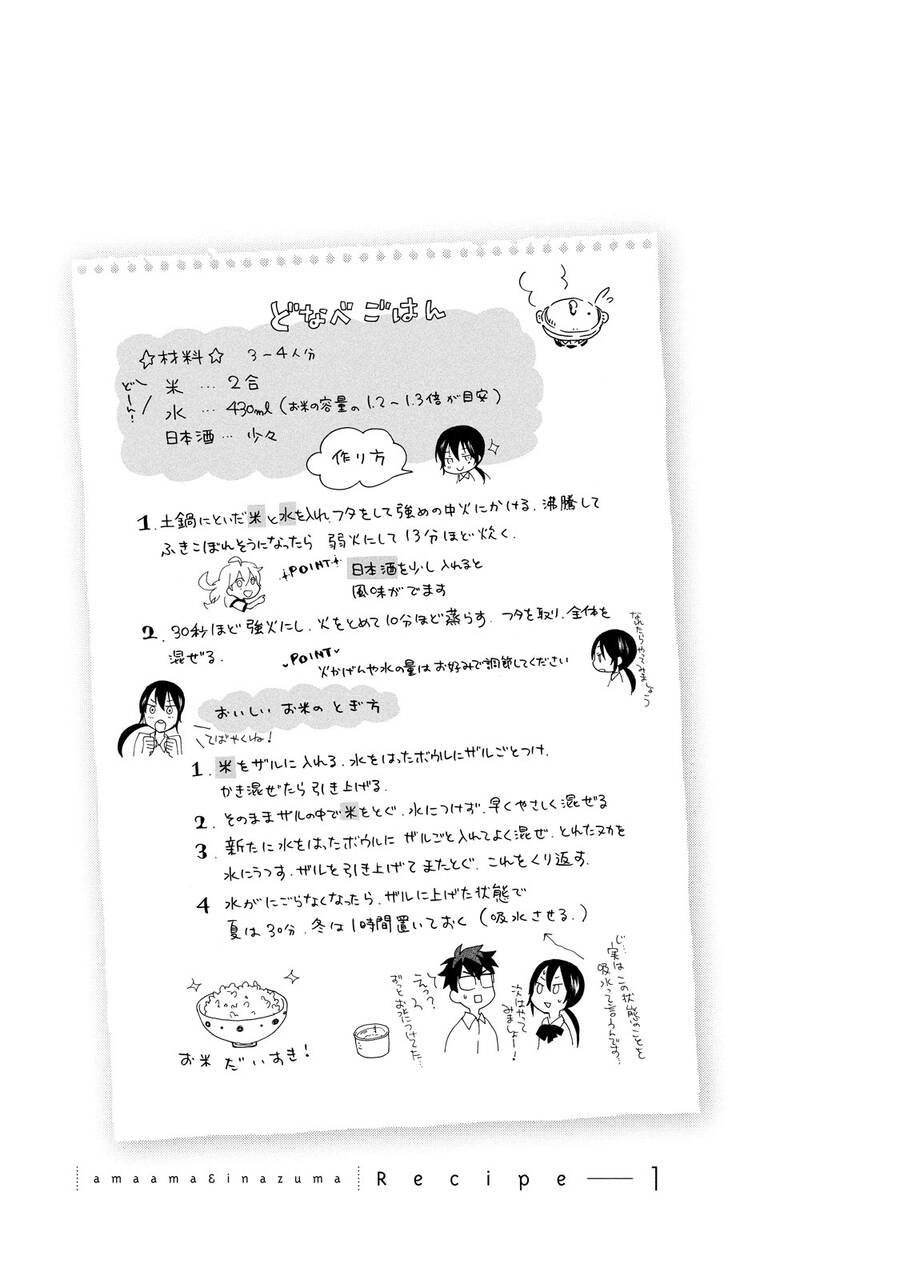 どなべごはん
☆材料☆ 3-4人分
どーん!
米 … 2合
水 … 430ml(お米の容量の1.2~1.3倍が目安)
日本酒 … 少々
作り方
1. 土鍋にといだ米と水を入れ、フタをして強めの中火にかける。沸騰して
ふきこぼれそうになったら 弱火にして13分ほど炊く。
POINT
日本酒を少し入れると
風味がでます
2. 30秒ほど強火にし、火をとめて10分ほど蒸らす。フタを取り、全体を
混ぜる。
POINT
火かげんや水の量はお好みで調節してください
なれたらおこげもつくってみましょう
おいしいお米のとぎ方
てばやくね!
1. 米をザルに入れる。水をはったボウルにザルごとつけ、
かき混ぜたら引き上げる。
2. そのままザルの中で米をとぐ。水につけず、早くやさしく混ぜる
3. 新たに水をはったボウルに ザルごと入れてよく混ぜ、とれたヌカを
水にうつす。ザルを引き上げてまたとぐ。これをくり返す。
4 水がにごらなくなったら、ザルに上げた状態で
夏は30分、冬は1時間置いておく(吸水させる。)
じ…
実はこの状態のことを
吸水って言うんです…
次はやって
みましょー!
えっ?
ずっとお水につけてた…
お米だいすき!
amaama&inazuma Recipe—1